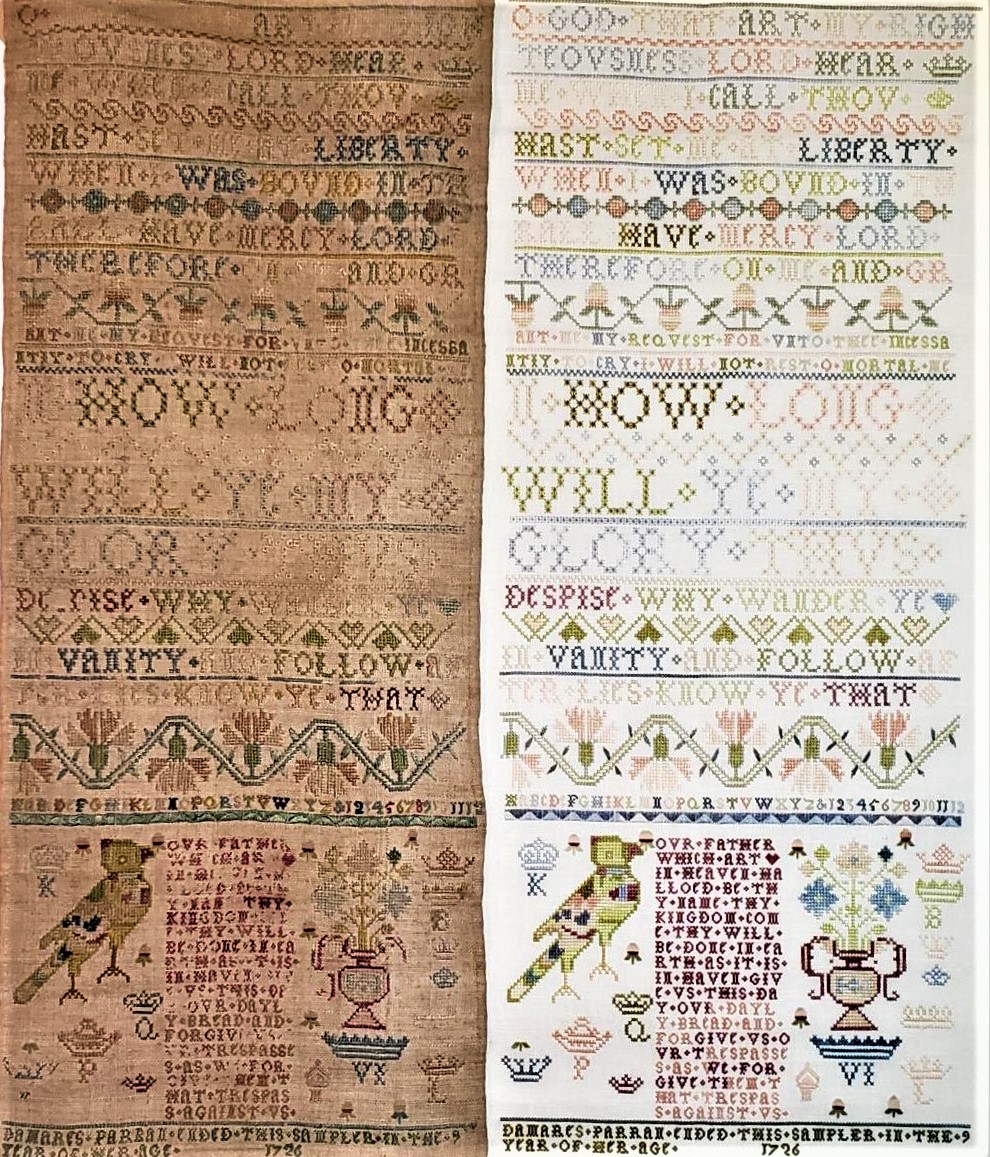 LORD·HEAR·
CALL·THOV·
HAST·SET·ME·AT·LIBERTY·
WHEN·I·WAS·BOVND·IN·TH
RALL·HAVE·MERCY·LORD·
THEREFORE·ON·AND·GR
ANT·ME·MY·REQVEST·FOR·INCESSA
NTIY·TO·CRY·WILL·NOT·O·MORTAL
HOW·LONG
WILL·YE·MY
GLORY
WHY·YE
IN·VANITY·AND·FOLLOW·AF
LIES·KNOW·YE·THAT
ABCDEFGHIKLMNOPQRSTVWXYZ&123456789101112
K
OVR·FATHER
THY·
KINGDOM
E·THY·WILL·
BE·DONE·IN·EA
RTH·AS·IT·IS·
IN·HAVEN
OVR·DAYL
Y·BREAD·AND·
TRESPASSE
HAT·TRESPAS
S·AGAINST·VS·
Q
P
VI
L
DAMARES·PARRAN·ENDED·THIS·SAMPLER·IN·THE·9
YEAR·OF·HER·AGE· 1726
O·GOD·THAT·ART·MY·RIGH
TEOVSNESS·LORD·HEAR·
ME·WHEN·I·CALL·THOV·
HAST·SET·ME·AT·LIBERTY·
WHEN·I·WAS·BOVND·IN·TH
RALL·HAVE·MERCY·LORD·
THEREFORE·ON·ME·AND·GR
ANT·ME·MY·REQVEST·FOR·VNTO·THEE·INCESSA
NTIY·TO·CRY·I·WILL·NOT·REST·O·MORTAL·ME
N·HOW·LONG
WILL·YE·MY
GLORY·THVS·
DESPISE·WHY·WANDER·YE
IN·VANITY·AND·FOLLOW·AF
TER·LIES·KNOW·YE·THAT
ABCDEFGHIKLMNOPQRSTVWXYZ&123456789101112
K
OVR·FATHER
WHICH·ART
IN·HEAVEN·HA
LLOED·BE·TH
Y·NAME·THY·
KINGDOM·COM
E·THY·WILL·
BE·DONE·IN·EA
RTH·AS·IT·IS·
IN·HAVEN·GIV
E·VS·THIS·DA
Y·OVR·DAYL
Y·BREAD·AND·
FORGIVE·VS·O
VR·TRESPASSE
S·AS·WE·FOR·
GIVE·THEM·T
HAT·TRESPAS
S·AGAINST·VS·
Q
P
VI
L
DAMARES·PARRAN·ENDED·THIS·SAMPLER·IN·THE·9
YEAR·OF·HER·AGE· 1726